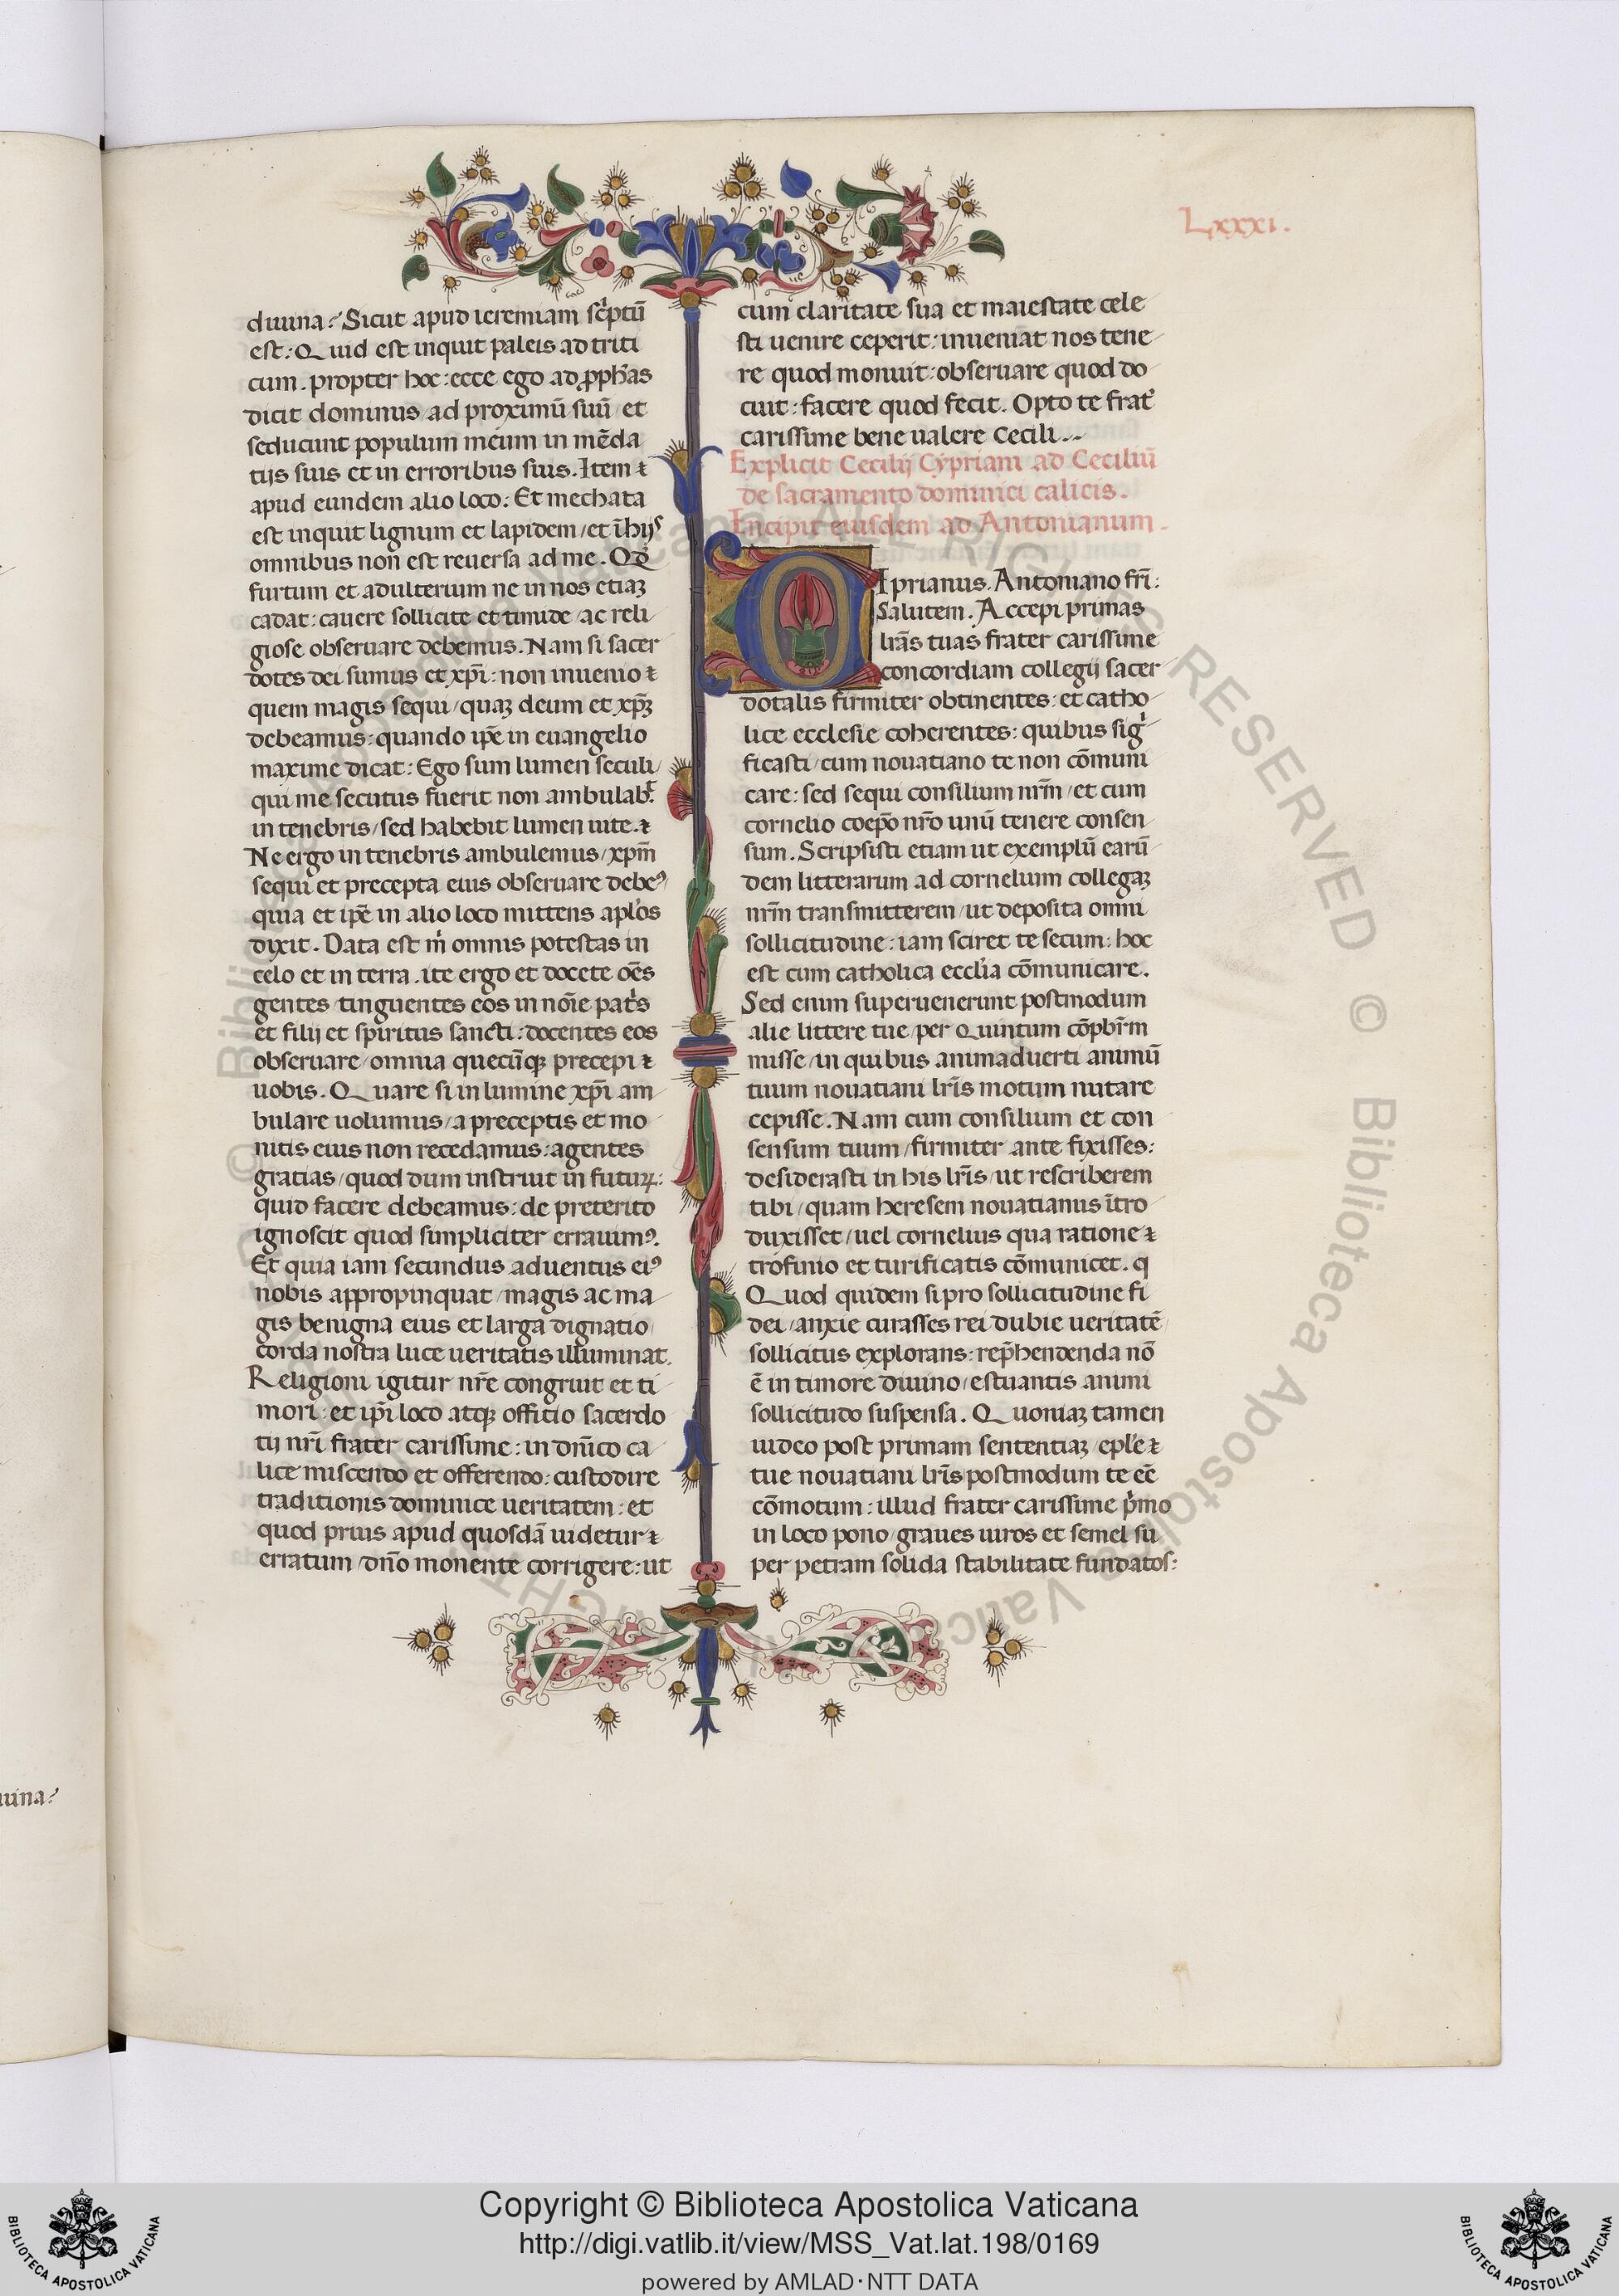 Lxxxi.
diuina? Sicut apud ieremiam sc̾ptū
est: Quid est inquit paleis ad triti
cum. propter hoc: ecce ego ad ꝓph̾as
dicit dominus/ad proximū suū/et
seducunt populum meum in mēda
tijs suis et in erroribus suis. Item ⁊
apud eundem alio loco: Et mechata
est inquit lignum et lapidem/et ī hijˢ
omnibus non est reuersa ad me. Qḋ
furtum et adulterium ne in nos etiaꝫ
cadat: cauere sollicite et timide/ac reli
giose obseruare debemus. Nam si sacer
dotes dei sumus et xp̄i: non inuenio ⁊
quem magis sequi/quaꝫ deum et xp̄ꝫ
debeamus: quando ip̄e in euangelio
maxime dicat: Ego sum lumen seculi/
qui me secutus fuerit non ambulab̾t
in tenebris/sed habebit lumen uite. ⁊
Ne ergo in tenebris ambulemus/xpm̄
sequi et precepta eius obseruare debeꝰ/
quia et ip̄e in alio loco mittens apl̾os
dixit. Data est m̾ omnis potestas in
celo et in terra. ite ergo et docete oēs
gentes tinguentes eos in noīe pat̾s
et filij et spiritus sancti: docentes eos
obseruare/omnia quecūqꝫ precepi ⁊
uobis. Quare si in lumine xp̄i am
bulare uolumus/a preceptis et mo
nitis eius non recedamus: agentes
gratias/quod dum instruit in futuꝝ:
quid facere debeamus: de preterito
ignoscit quod simpliciter errauimꝰ.
Et quia iam secundus aduentus eiꝰ
nobis appropinquat/magis ac ma
gis benigna eius et larga dignatio
corda nostra luce ueritatis illuminat.
Religioni igitur nr̄e congruit et ti
mori: et ip̄i loco atqꝫ offitio sacerdo
tij nr̄i frater carissime: in dn̄ico ca
lice miscendo et offerendo: custodire
traditionis dominice ueritatem: et
quod prius apud quosdā uidetur ⁊
erratum/dn̄o monente corrigere: ut
cum claritate sua et maiestate cele
sti uenire ceperit: inueniat nos tene
re quod monuit: obseruare quod do
cuit: facere quod fecit. Opto te frat̾
carissime bene ualere Cecili..
Explicit Cecilij Cypriani ad Ceciliū
de sacramento dominici calicis.
Incipit eiusdem ad Antonianum.
CIprianus. Antoniano fr̄i:
Salutem. Accepi primas
lr̄as tuas frater carissime
concordiam collegij sacer
dotalis firmiter obtinentes: et catho
lice ecclesie coherentes: quibus sig̾
ficasti/cum nouatiano te non cōmuni
care: sed sequi consilium nr̄m/et cum
cornelio coep̄o nr̄o unū tenere consen
sum. Scripsisti etiam ut exemplū earū
dem litterarum ad cornelium collegaꝫ
nr̄m transmitterem/ut deposita omni
sollicitudine: iam sciret te secum: hoc
est cum catholica eccl̾ia cōmunicare.
Sed enim superuenerunt postmodum
alie littere tue/per Quintum cōpbr̄m
misse/in quibus animaduerti animū
tuum nouatiani lr̄is motum nutare
cepisse. Nam cum consilium et con
sensum tuum/firmiter ante fixisses:
desiderasti in his lr̄is/ut rescriberem
tibi/quam heresem nouatianus ītro
duxisset/uel cornelius qua ratione ⁊
trofinio et turificatis cōmunicet. q
Quod quidem si pro sollicitudine fi
dei/anxie curasses rei dubie ueritatē
sollicitus explorans: rep̄hendenda nō
ē in timore diuino/estuantis animi
sollicitudo suspensa. Quoniaꝫ tamen
uideo post primam sententiaꝫ/epl̾e ⁊
tue nouatiani lr̄is postmodum te eē
cōmotum: illud frater carissime p̾mo
in loco pono/graues uiros et semel su
per petram solida stabilitate fundatos:
uina?
Copyright © Biblioteca Apostolica Vaticana
http://digi.vatlib.it/view/MSS_Vat.lat.198/0169
powered by AMLAD·NTT DATA
BIBLIOTECA APOSTOLICA VATICANA
BIBLIOTECA APOSTOLICA VATICANA